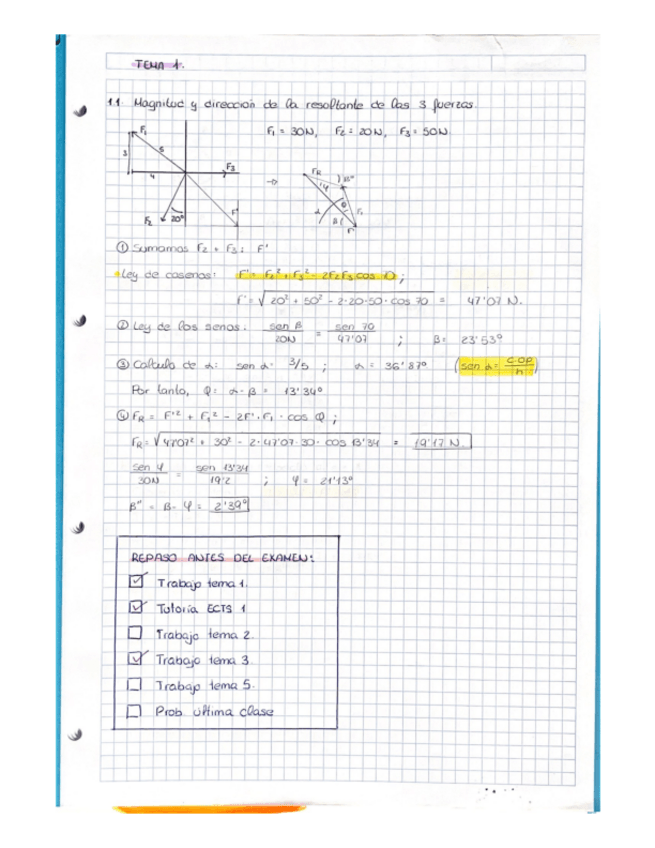 TEMA 1.
1.1. Magnitud y direccion de la resultante de las 3 fuerzas.
F₁ = 30N, F₂ = 20N, F₃ = 50N
F₁
3
5
4
F₃
F₂
20º
F'
→
FR
φ
α
β
F₁
F'
① Sumamos F₂ + F₃: F'
*Ley de cosenos: F' = F₂² + F₃² - 2F₂F₃ cos 70;
F' = √20² + 50² - 2·20·50·cos 70 = 47'07 N.
② Ley de los senos: sen β / 20N = sen 70 / 47'07 ; β = 23'53º
③ Calculo de α: sen α = 3/5 ; α = 36'87º (sen α = C.OP / h)
Por tanto, Q = α - β = 13'34º
④ FR = F'² + F₁² - 2F'·F₁ · cos Q ;
FR = √47'07² + 30² - 2·47'07·30· cos 13'34 = 19'17 N.
sen φ / 30N = sen 13'34 / 19'2 ; φ = 21'13º
β'' = β - φ = 2'39º
REPASO ANTES DEL EXAMEN:
Trabajo tema 1.
Tutoría ECTS 1
Trabajo tema 2.
Trabajo tema 3.
Trabajo tema 5.
Prob. última clase